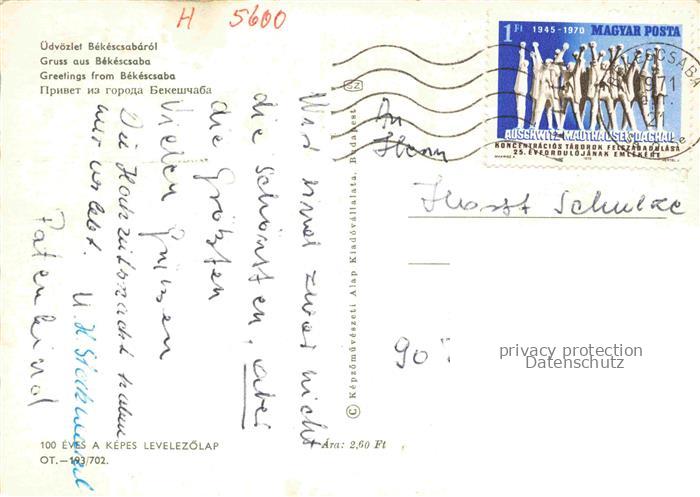 H 5600
Üdvözlet Békéscsabáról
Gruss aus Békéscsaba
Greetings from Békéscsaba
Привет из города Бекешчаба
SZ
1 Ft 1945-1970 MAGYAR POSTA
AUSCHWITZ MAUTHAUSEN DACHAU
KONCENTRÁCIÓS TÁBOROK FELSZABADULÁSA
25. ÉVFORDULÓJÁNAK EMLÉKÉRE
BÉKÉSCSABA
1971
21
An
Herrn
Horst Schulze
90
privacy protection
Datenschutz
Wir sind zwar nicht
die schönsten, aber
die Größten
Vielen Grüssen
Die Hochzeitsnacht haben
wir erlebt.
Patenkind
© Képzőművészeti Alap Kiadóvállalata, Budapest
100 ÉVES A KÉPES LEVELEZŐLAP
OT.—193/702.
Ára: 2,60 Ft